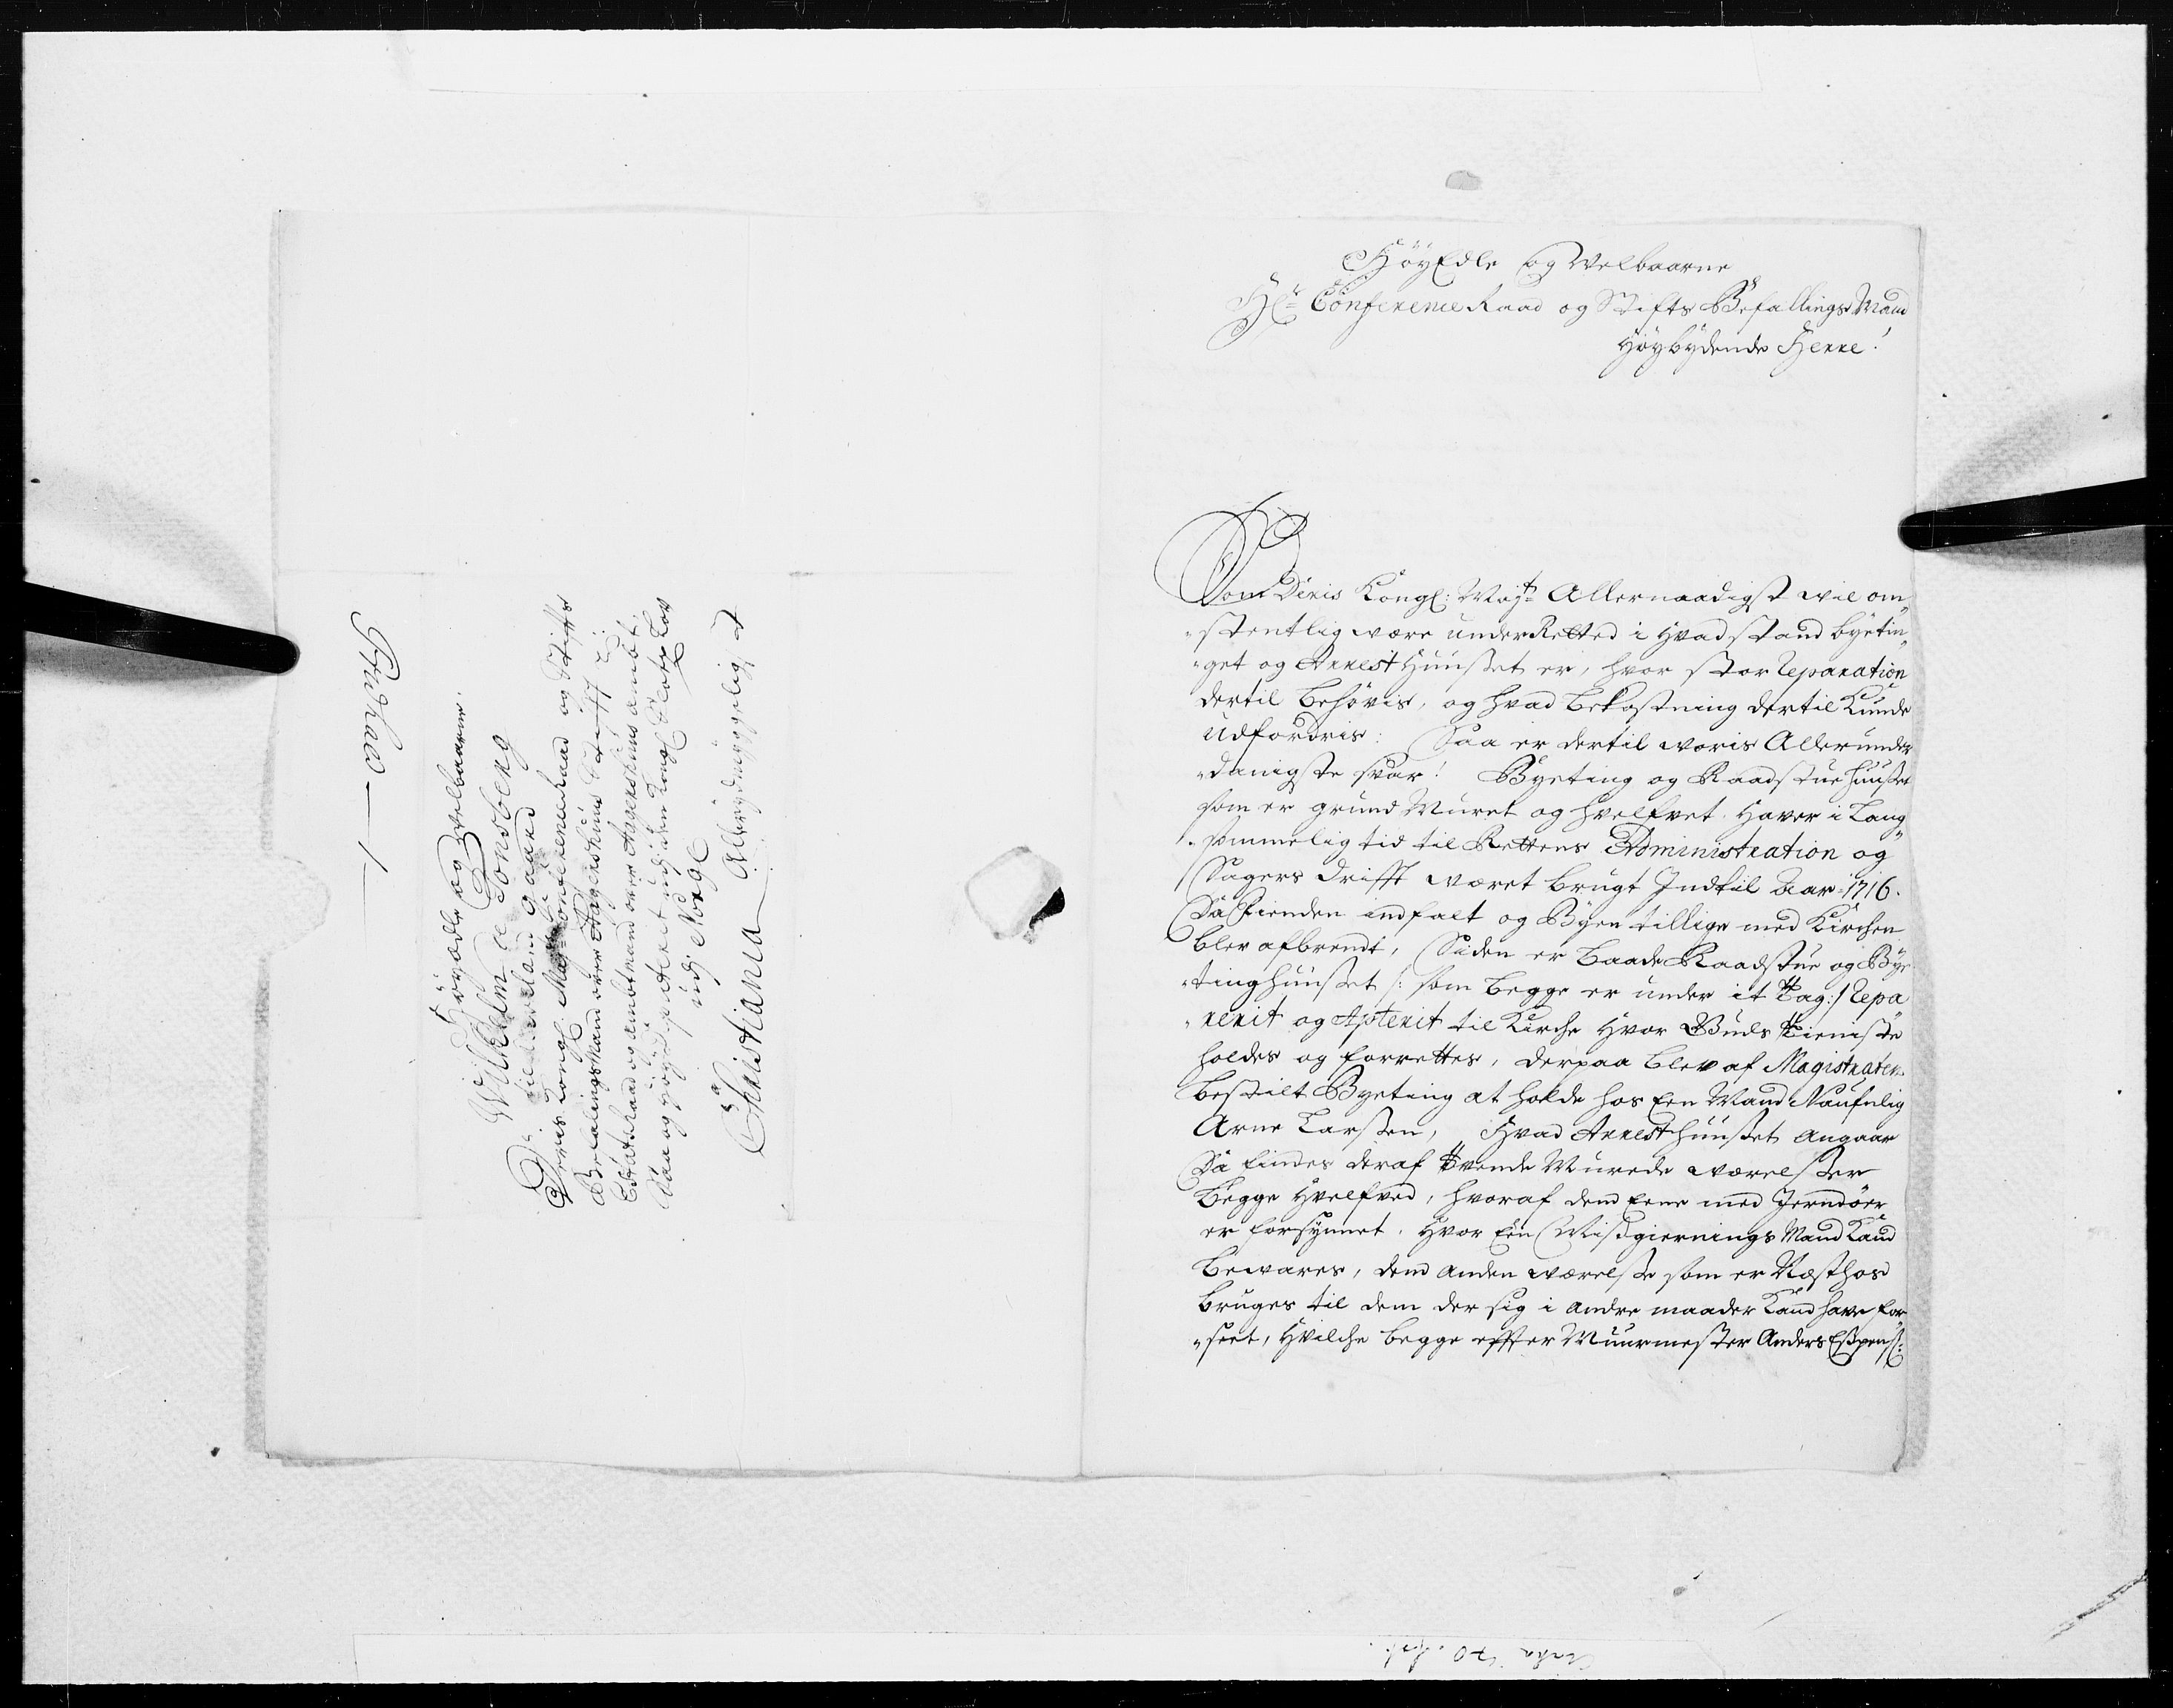 HøyEdle og Velbaarne
Hr: Conference Raad og Stifts Befallings Mand
Høybydende Herre!
Som Deris Kongl: Mayts Allernaadigst wil om„
„stentlig være underRetted i Hvad stand byetin„
„get og Arrest Huuset er, hvor stor Reparation
dertil behøvis, og hvad bekostning dertil Kunde
udfordris: Saa er dertil woris Allerunder„
„danigste svar! Byeting og Raadstue huuset
som er grund Muret og hvelfvet. Haver i Lang„
„sommelig tid til Rettens Administration og
Sagers Drifft wæret brugt Indtil Aar 1716.
Da Fienden indfalt og Byen tillige med Kirchen
blev afbrendt, Siden er baade Raadstue og Bye
„tinghuuset /: som begge er under it Tag:/ Repa
„rerit og Apterit til Kirche Hvor Guds tieniste
holdes og forrettes, derpaa blev af Magistraten
bestilt Byeting at holde hos Een Mand Naufnlig
Arne Larsen, Hvad Arrest huuset angaar
Da findes deraf tvende Murede wærelser
begge Hvelfved, hvoraf dend Eene med Jerndöer
er forsynnet. Hvor Een Misdgiernings Mand Kand
bewares, dend anden wærelse som er Næst hos
bruges til dem der sig i andre maader Kand have for
„seet, Hvilche begge effter Muurmester Anders Espens:
Høyædle og Welbaarne
Wilhelm de Tonsberg
til
Deris Kongl. Mayts Conference Raad og Stiffts
Befalings Mand over Aggershuus Stifft
Etatz Raad og Ambtmand over Aggershuus ambt,
Saa og Høy
udj Norge
Allerydmyggeligst
Christiania